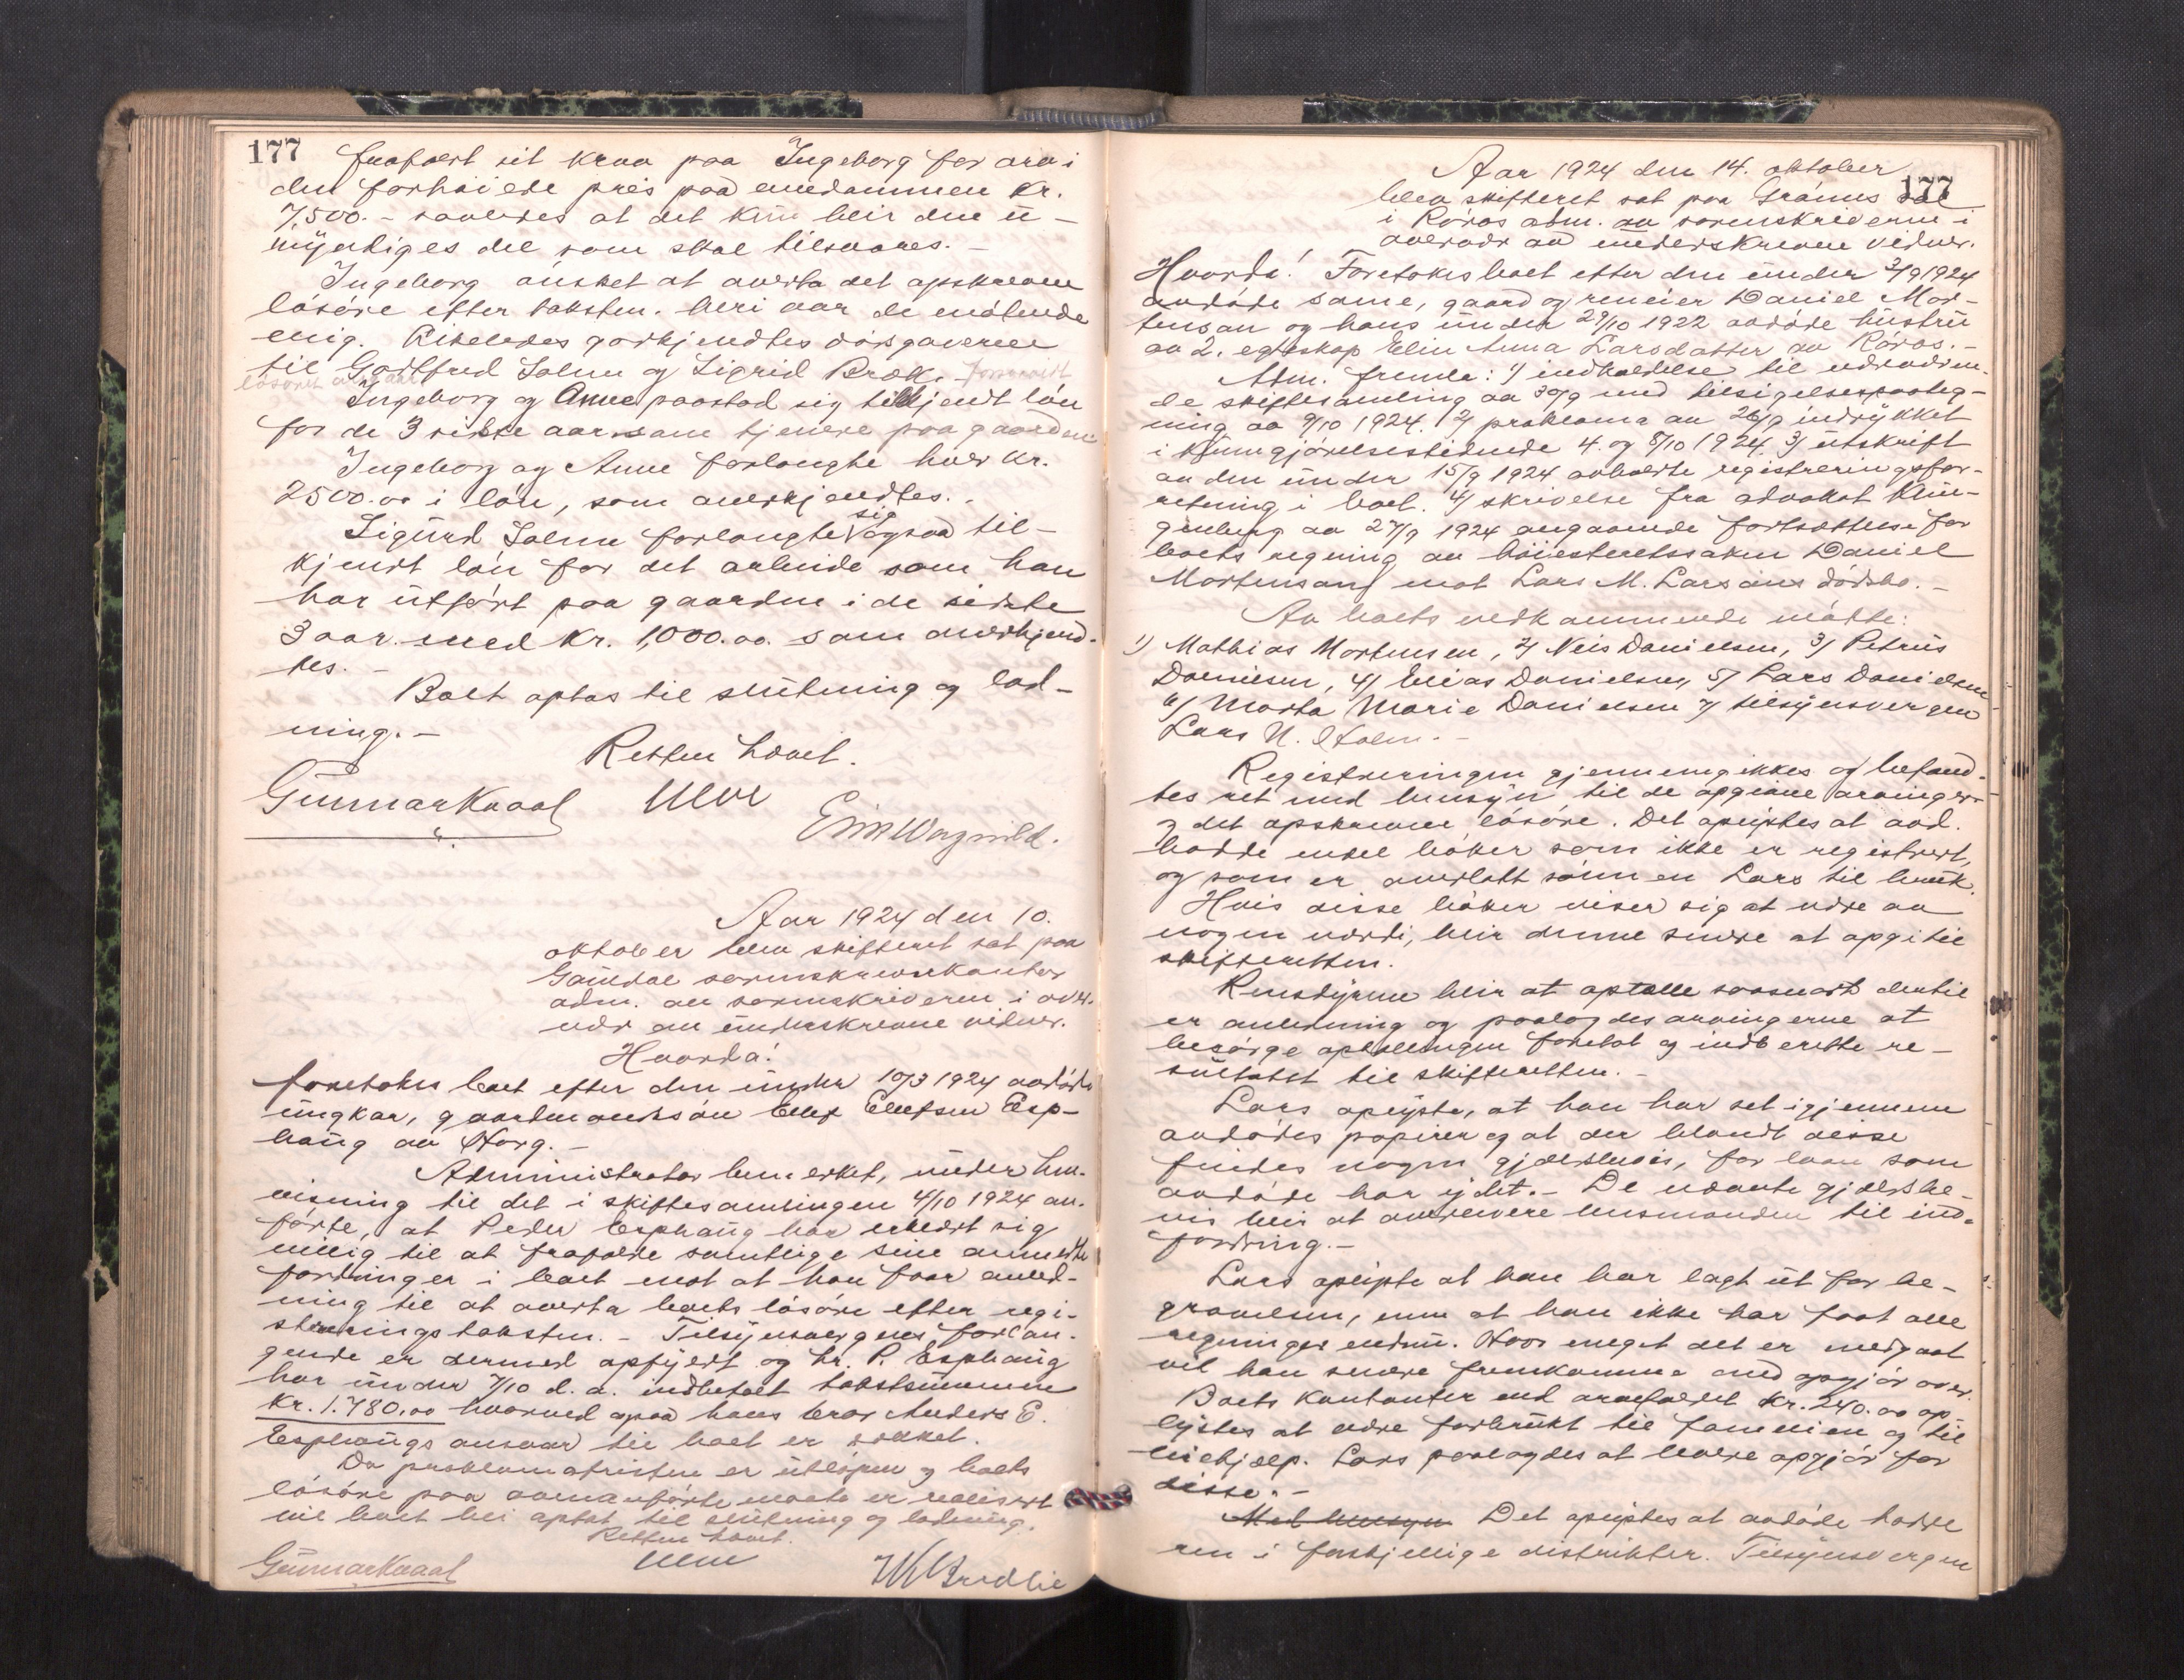 177
frafaldt sit krav paa Ingeborg for arv i
den forhøiede pris paa eiendommen kr.
7,500.- saaledes at det kun blir den u-
myndiges del som skal tilsvares.-
Ingeborg ønsket at overta det opskrevne
løsøre efter taksten. heri var de møtende
enig. Likeledes godkjendtes dødsgaverne
til Gottfred Solem og Sigrid Bræk.
Ingeborg og Anne paastod sig tilkjendt løn
for de 3 sidste aar som tjenere paa gaarden
Ingeborg og Anne forlangte hver kr.
2500.00 i løn, som anerkjendtes.-
Sigurd Solem forlangte sig ogsaa til-
kjendt løn for det arbeide som han
har utført paa gaarden i de sidste
3 aar. med kr. 1,000.00. som anerkjend-
tes.-
Boet optas til slutning og lod-
ning.-
Retten hævet.
Gunnar Kvaal
Aar 1924 den 10.
oktober blev skifteret sat paa
Gauldal sorenskriverkontor
adm. av sorenskriveren i over-
vær av underskrevne vidner.
Hvorda!
foretokes boet efter den under 10/3 1924 avdøde
ungkar, gaardmandssøn Ellef Ellefsen Esp-
haug av Horg.-
Administrator bemerket, under hen-
visning til det i skiftesamlingen 4/10 1924 an-
førte, at Peder Esphaug har erklært sig
villig til at frafalde samtlige sine anmeldte
fordringer i boet mot at han faar anled-
ning til at overta boets løsøre efter regi-
streringstaksten.- Tilsynsvergens forlan-
gende er dermed opfyldt og hr. P. Esphaug
har under 7/10 d.a. indbetalt takstsummen
kr. 1.780,00 hvorved ogsaa hans bror Anders E.
Esphaugs ansvar til boet er dækket.
Da proklamafristen er utløpen og boets
løsøre paa ovenanførte maate er realisert
vil boet bli optat til slutning og lodning.
Retten hævet.
Gunnar Kvaal
177
Aar 1924 den 14. oktober
blev skifteret sat paa Gråmus sal
i Røros adm. av sorenskriveren i
overvær av underskrevne vidner.
Hvorda! Foretokes boet efter den under 2/9 1924
avdøde same, gaard og reneier Daniel Mor-
tensson og hans under 29/10 1922 avdøde hustru
av 2. egteskap Elin Anna Larsdatter av Røros.-
Adm. fremla: 1) indkaldelse til nærværen-
de skiftesamling av 30/9 med tilsigelsespaateg-
ning av 9/10 1924. 2) proklama av 26/9 indrykket
i kundgjørelsestidende 4. og 8/10 1924, 3) utskrift
av den under 15/9 1924 avholdte registreringsfor-
retning i boet. 4) skrivelse fra advokat Klin-
genberg av 27/9 1924 angaaende fortsættelse for
boets regning av høiesteretssaken Daniel
Mortensson mot Lars M. Larsons dødsbo.-
Av boets vedkommende møtte:
1) Mathias Mortensen, 2) Neis Danielsen, 3) Petrus
Danielsen, 4) Elias Danielsen, 5) Lars Danielsen
6) Marta Marie Danielsen 7) tilsynsvergen
Lars N. Holm.-
Registreringen gjennemgikkes og befand-
tes ret med hensyn til de opgivne arvinger
og det opskrevne løsøre. Det oplystes at avd.
hadde endel bøker som ikke er registrert,
og som er overlatt sønnen Lars til bruk.
Hvis disse bøker viser sig at være av
nogen værdi, blir denne senere at opgi til
skifteretten.
Rensdyrene blir at optælle saasnart dertil
er anledning og paalagdes arvingerne at
besørge optællingen foretat og indberette re-
sultatet til skifteretten.-
Lars oplyste, at han har set igjennem
avdødes papirer og at der blandt disse
findes nogen gjældsbevis, for laan som
avdøde har ydet.- De nævnte gjældsbe-
vis blir at overlevere lensmanden til ind-
fordring.-
Lars oplyste at han har lagt ut for be-
gravelsen, men at han ikke har faat alle
regninger endnu. Hvor meget det er medgaat
vil han senere fremkomme med opgjør over.
Boets kontanter ved arvefaldet kr. 240.00 op-
lystes at være forbrukt til familien og til
leiehjælp. Lars paalagdes at levere opgjør for
disse.-
Med hensyn Det oplystes at avdøde hadde
ren i forskjellige distrikter. Tilsynsvergen